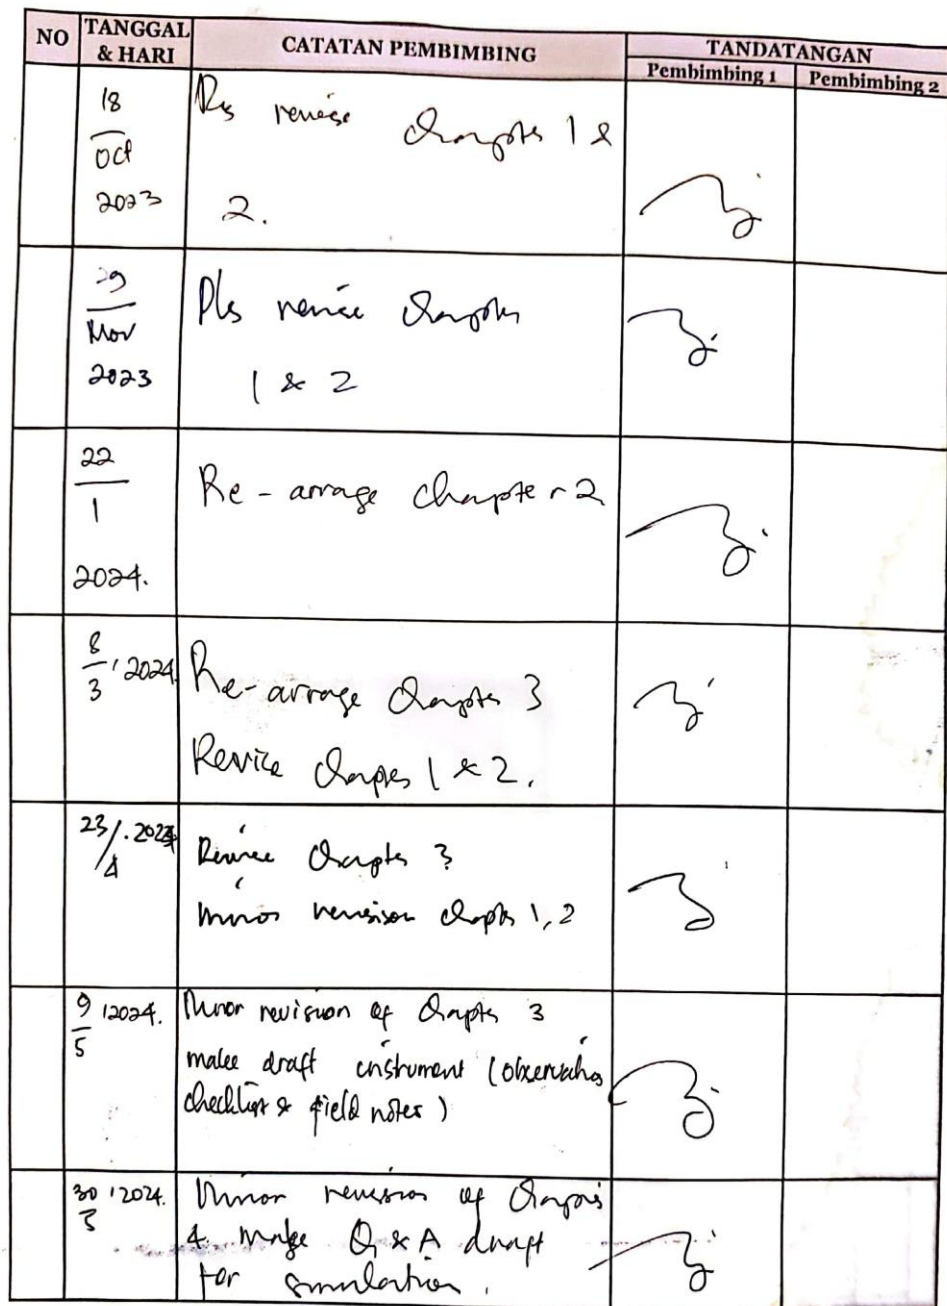 NO TANGGAL & HARI CATATAN PEMBIMBING TANDATANGAN
Pembimbing 1 Pembimbing 2
18
Oct
2023
Pls revise chapter 1 &
2.
29
Nov
2023
Pls revise chapter
1 & 2
22
1
2024.
Re-arrage chapter 2
8/3, 2024.
Re-arrage chapter 3
Revice chapter 1 & 2.
23/4. 2024
Revise chapter 3
minor revision chapter 1, 2
9/5, 2024.
Minor revision of chapter 3
make draft instrument (observation
checklist & field notes)
30/5, 2024.
Minor revision of chapter
4. make Q & A draft
for simulation.